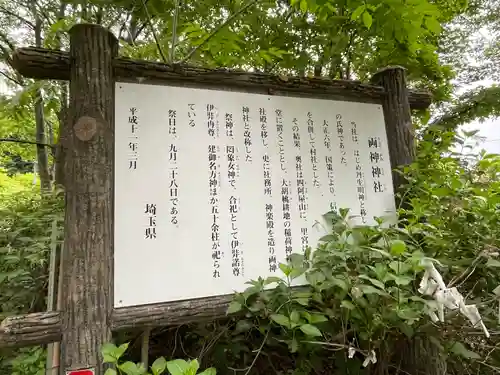 両神神社
当社は、はじめ丹生明神と称し
の氏神であった。
大正六年、国策により、信
を合併して村社とした。
その結果、奥社は四阿屋山に、里宮は
堂に置くこととし、大胡桃耕地の稲荷神
社殿を移し、更に社務所、神楽殿を造り両神
神社と改称した。
祭神は、罔象女神で、合祀として伊弉諾尊
伊弉冉尊、建御名方神ほか五十余柱が祀られ
ている。
祭日は、九月二十八日である。
平成十一年三月
埼玉県